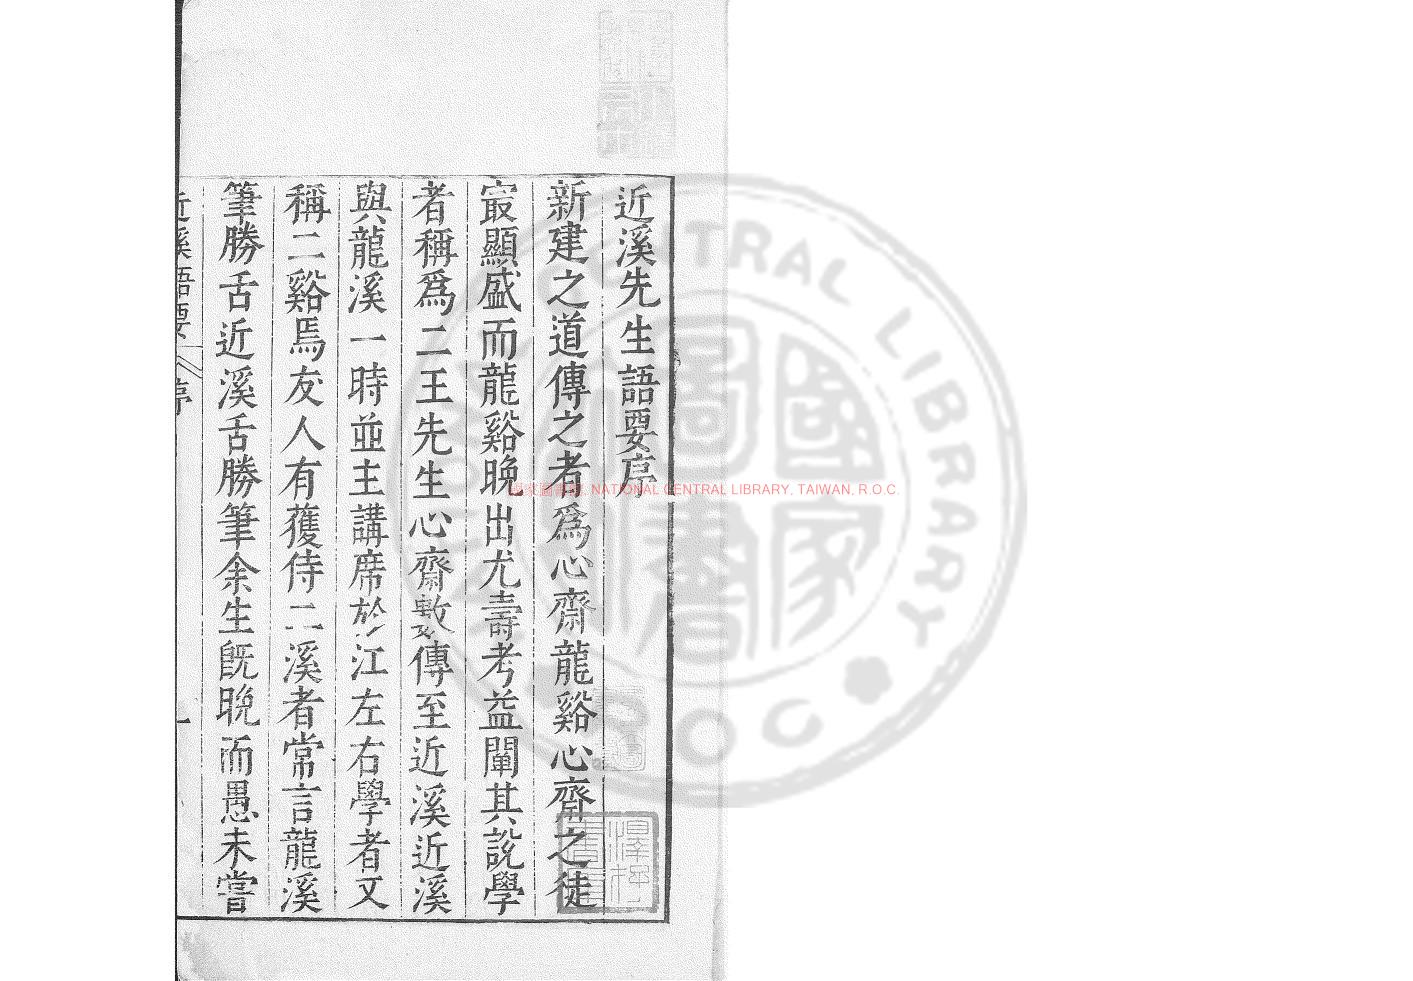 近溪先生語要序
新建之道傳之者爲心齋龍谿心齋之徒
㝡顯盛而龍谿晚出尤壽考益闡其説學
者稱爲二王先生心齋數傳至近溪近溪
與龍溪一時並主講席於江左右學者又
稱二谿焉友人有獲侍二溪者常言龍溪
筆勝舌近溪舌勝筆余生旣晚而愚未嘗
近溪語要 序 一
國家圖書館
CENTRAL LIBRARY
ROC
NATIONAL CENTRAL LIBRARY, TAIWAN, R.O.C.